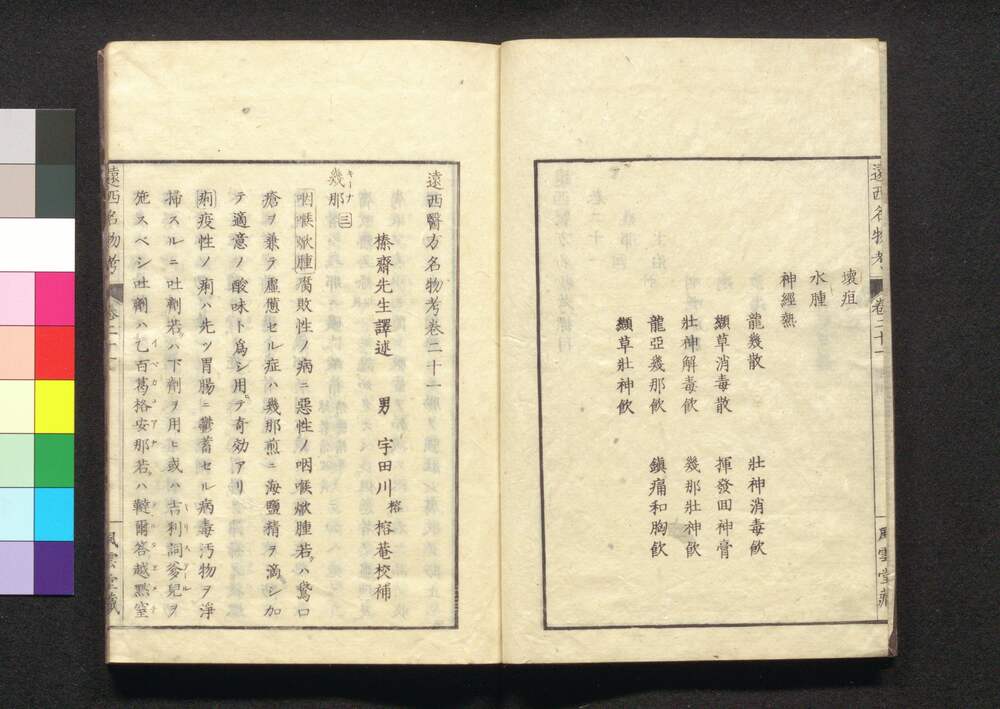 壞疽
水腫
神經熱
龍幾散　壯神消毒飲
纈草消毒散　揮發回神膏
壯神解毒飲　幾那壯神飲
龍亞幾那飲　鎮痛和胸飲
纈草壯神飲
遠西名物考　卷二十一　風雲堂藏
遠西醫方名物考卷二十一
榛齋先生譯述　男　宇田川榕　榕菴校補
幾那キーナ 三
咽喉焮腫腐敗性ノ病ニ惡性ノ咽喉焮腫若クハ鵞口
瘡ヲ兼テ虛憊セル症ハ幾那煎ニ海鹽精ヲ滴シ加
テ適意ノ酸味ト爲シ用テ奇効アリ
痢疫性ノ痢ハ先ツ胃腸ニ鬱蓄セル病毒汚物ヲ淨
掃スルニ吐劑若クハ下劑ヲ用ヒ或ハ吉利詞爹兒ヲ
施スベシ吐劑ハ乙百葛格安那若クハ韃爾答越黙窒
遠西名物考　卷二十一　風雲堂藏